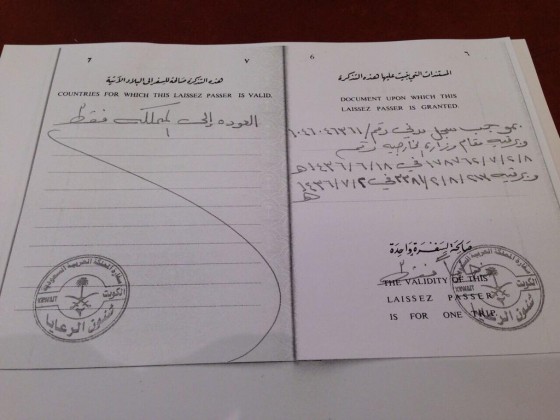 ٦
6
المستندات التي بنيت عليها هذه التذكرة
DOCUMENT UPON WHICH THIS
LAISSEZ PASSER IS GRANTED.
بموجب سجل مدني رقم /
وبرقية مقام وزارة الخارجية رقم
١٧٨٧٦٢/٧/٢/٨ في ١٤٣٦/٦/١٨هـ
وبرقية في ١٤٣٦/٧/٢هـ
صالحة لسفرة واحدة
فقط
THE VALIDITY OF THIS
LAISSEZ PASSER
IS FOR ONE TRIP.
سفارة المملكة العربية السعودية
الكويت
KUWAIT
شئون الرعايا
٧
7
هذه التذكرة صالحة للسفر إلى البلاد الآتية
COUNTRIES FOR WHICH THIS LAISSEZ PASSER IS VALID.
العودة إلى المملكة فقط
سفارة المملكة العربية السعودية
الكويت
KUWAIT
شئون الرعايا